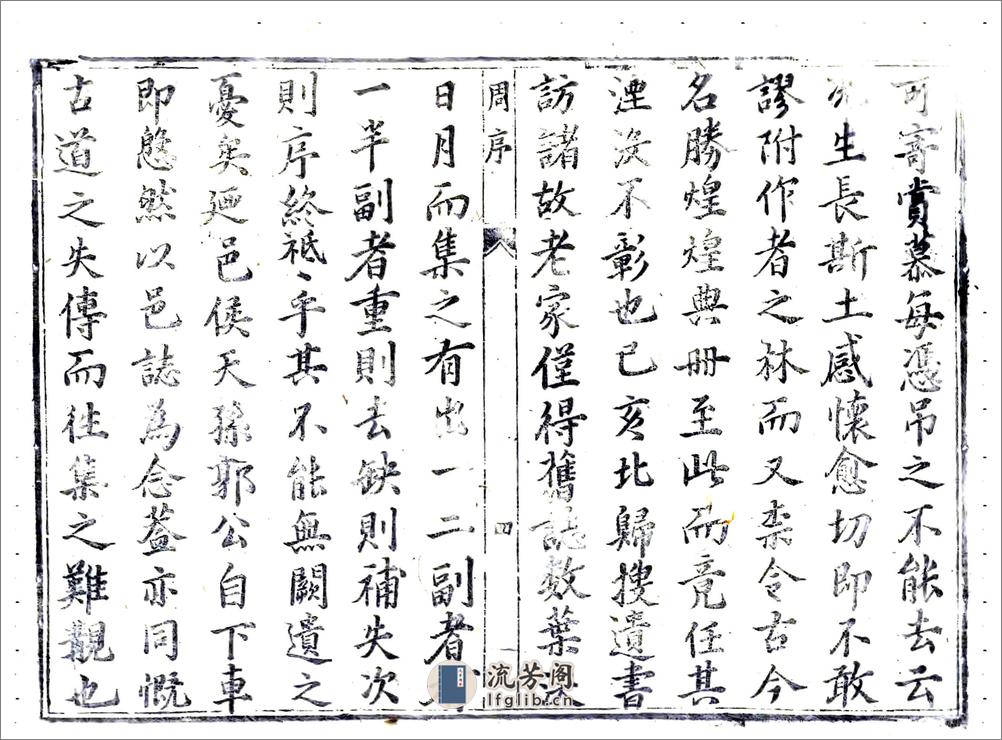 可寄賞慕每憑吊之不能去云
况生長斯土感懷愈切即不敢
謬附作者之林而又柰令古今
名勝煌煌典冊至此而竟任其
湮沒不彰也己亥北歸搜遺書
訪諸故老家僅得舊誌数葉
周序
四
日月而集之有出一二副者
一半副者重則去缺則補失次
則序終祗〻乎其不能無闕遺之
憂矣廼邑侯天孫郭公自下車
即慇然以邑誌為念葢亦同慨
古道之失傳而徃集之難覯也
流芳阁
lfglib.cn